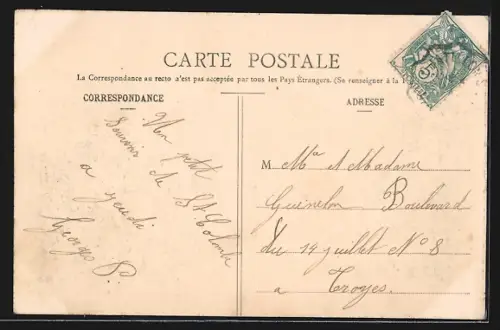 CARTE POSTALE
La Correspondance au recto n'est pas acceptée par tous les Pays Étrangers. (Se renseigner à la
CORRESPONDANCE
ADRESSE
Un petit
Souvenir de St Colombe
a jeudi
Georges P.
M Mr et Madame
Guenelon Boulevard
du 14 juillet No 8
a Troyes.